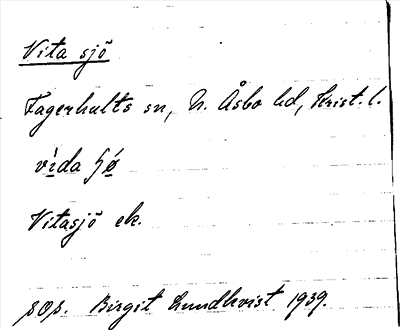 Vita sjö
Fagerhults sn, N. Åsbo hd, Krist. l.
vìda
Vitasjö ek.
Birgit Lundkvist 1939.